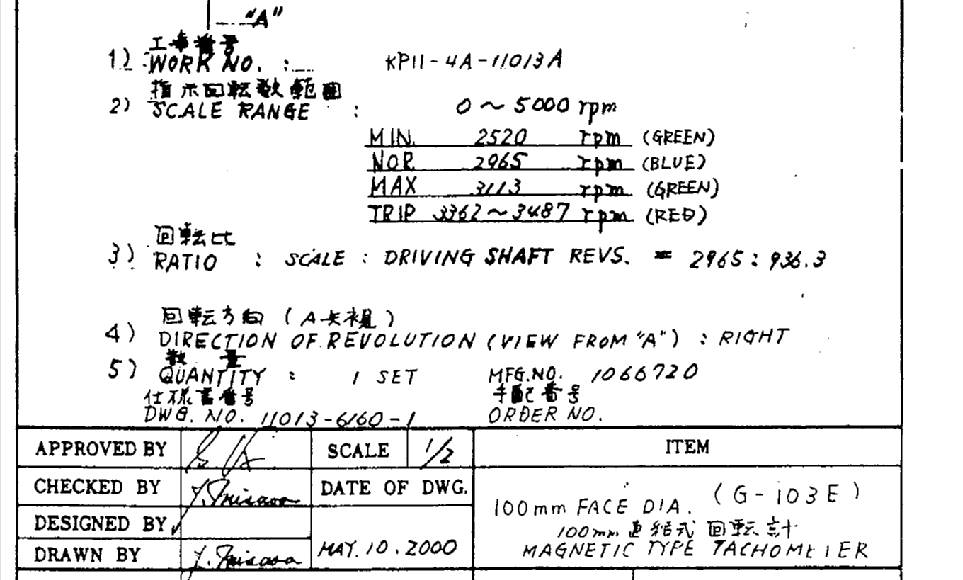 "A"
工事番号
1) WORK NO. : KP11-4A-11013A
指示回転数範囲
2) SCALE RANGE : 0～5000 rpm
MIN. 2520 rpm (GREEN)
NOR. 2965 rpm (BLUE)
MAX 3113 rpm (GREEN)
TRIP 3362～3487 rpm (RED)
回転比
3) RATIO : SCALE : DRIVING SHAFT REVS. = 2965 : 936.3
回転方向 (A矢視)
4) DIRECTION OF REVOLUTION (VIEW FROM "A") : RIGHT
数量
5) QUANTITY : 1 SET MFG.NO. 1066720
仕様書番号 手配番号
DWG. NO. 11013-6160-1 ORDER NO.
APPROVED BY SCALE 1/2 ITEM
CHECKED BY DATE OF DWG.
100mm FACE DIA. (G-103E)
DESIGNED BY
100mm 直結式 回転計
DRAWN BY MAY.10.2000 MAGNETIC TYPE TACHOMETER